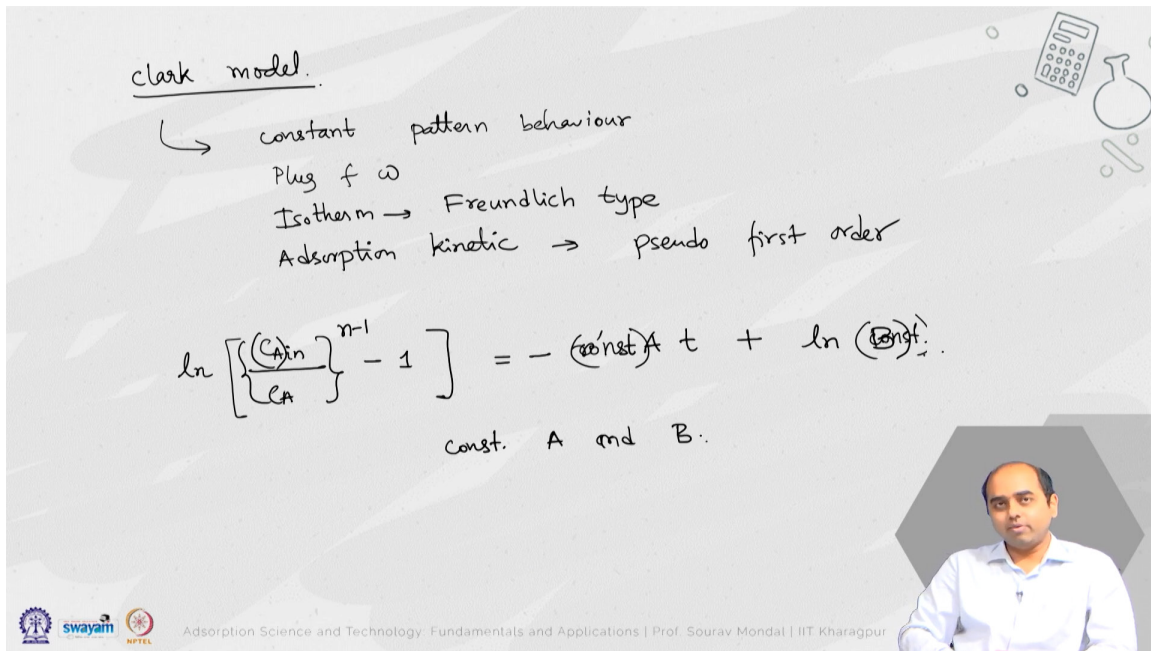 clark model.
constant pattern behaviour
Plug f ω
Isotherm → Freundlich type
Adsorption kinetic → pseudo first order
ln [ { (CA)in / CA }^(n-1) - 1 ] = - (const)A t + ln (B).
const. A and B.
swayam
NPTEL
Adsorption Science and Technology: Fundamentals and Applications | Prof. Sourav Mondal | IIT Kharagpur